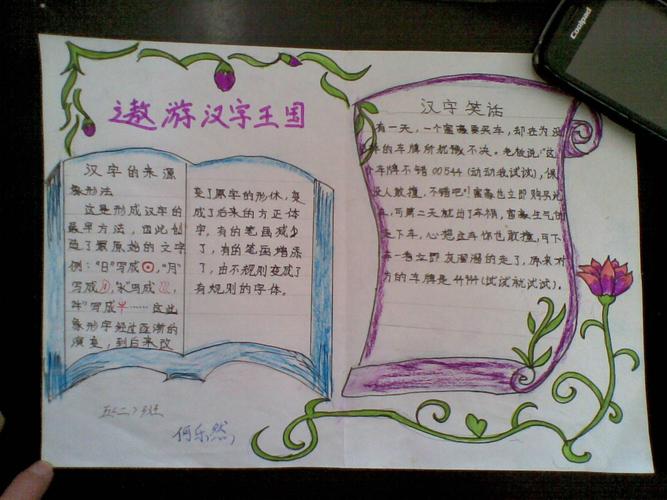 遨游汉字王国
汉字的来源
象形法
这是形成汉字的
最早方法，由此创
造了最原始的文字
例："日"写成 ，"月"
写成 ，"水"写成 ，
"牛"写成 ……这些
象形字经过逐渐的
演变，到后来改
变了原字的形体，变
成了后来的方正体
字，有的笔画减少
了，有的笔画增添
了，由不规则变成了
有规则的字体。
汉字笑话
有一天，一个富豪要买车，却在为买
车的车牌所犹豫不决。老板说："这
个车牌不错00544(动动我试试)，保
没人敢撞，不错吧！富豪也立即购买
车，可第二天就出了车祸，富豪生气的
走下车，心想这车你也敢撞，可下
车一看立即灰溜溜的走了，原来对
方的车牌是44944(试试就试试)。
五(二)班
何乐然
Coolpad